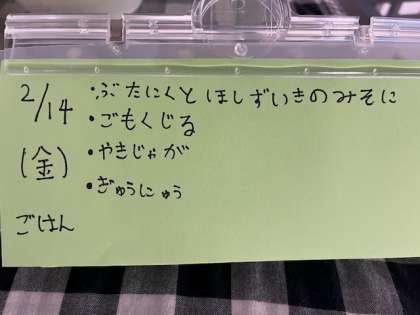 2/14
(金)
ごはん
・ぶたにくとほしずいきのみそに
・ごもくじる
・やきじゃが
・ぎゅうにゅう